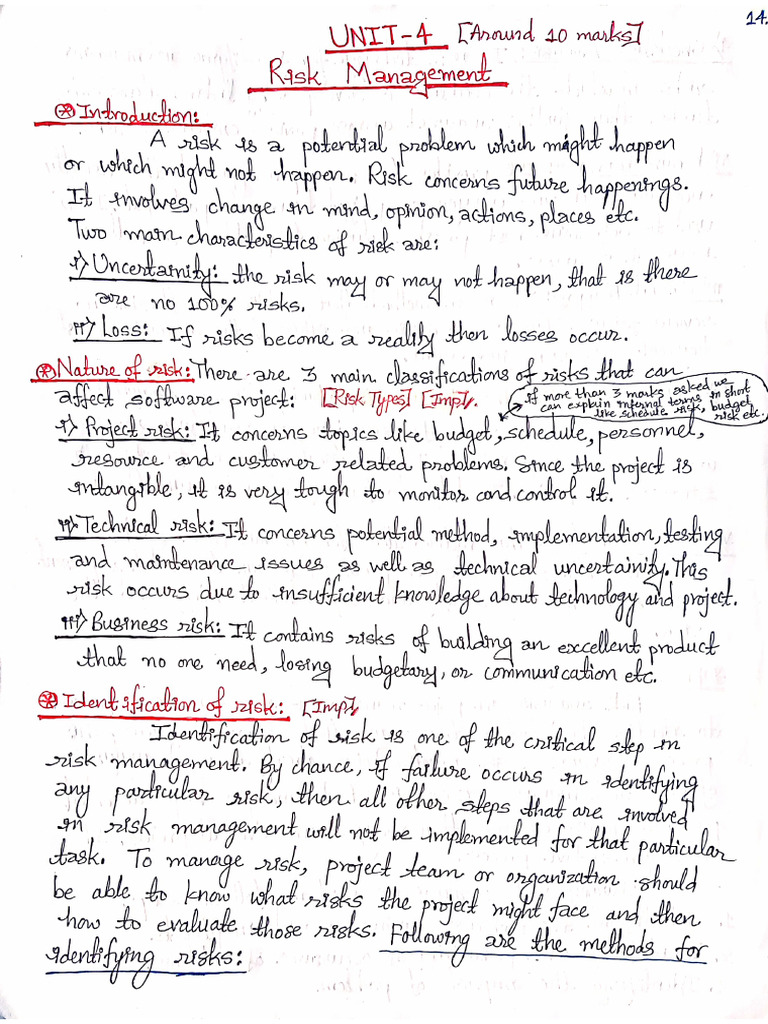 14.
UNIT-4 [Around 10 marks]
Risk Management
⊛ Introduction:
A risk is a potential problem which might happen
or which might not happen. Risk concerns future happenings.
It involves change in mind, opinion, actions, places etc.
Two main characteristics of risk are:
i) Uncertainity: the risk may or may not happen, that is there
are no 100% risks.
ii) Loss: If risks become a reality then losses occur.
⊛ Nature of risk: There are 3 main classifications of risks that can
affect software project: [Risk Types] [Imp].
if more than 3 marks asked we
can explain internal terms in short
like schedule risk, budget
risk etc.
i) Project risk: It concerns topics like budget, schedule, personnel,
resource and customer related problems. Since the project is
intangible, it is very tough to monitor and control it.
ii) Technical risk: It concerns potential method, implementation, testing
and maintenance issues as well as technical uncertainity. This
risk occurs due to insufficient knowledge about technology and project.
iii) Business risk: It contains risks of building an excellent product
that no one need, losing budgetary, or communication etc.
⊛ Identification of risk: [Imp].
Identification of risk is one of the critical step in
risk management. By chance, if failure occurs in identifying
any particular risk, then all other steps that are involved
in risk management will not be implemented for that particular
task. To manage risk, project team or organization should
be able to know what risks the project might face and then
how to evaluate those risks. Following are the methods for
identifying risks: